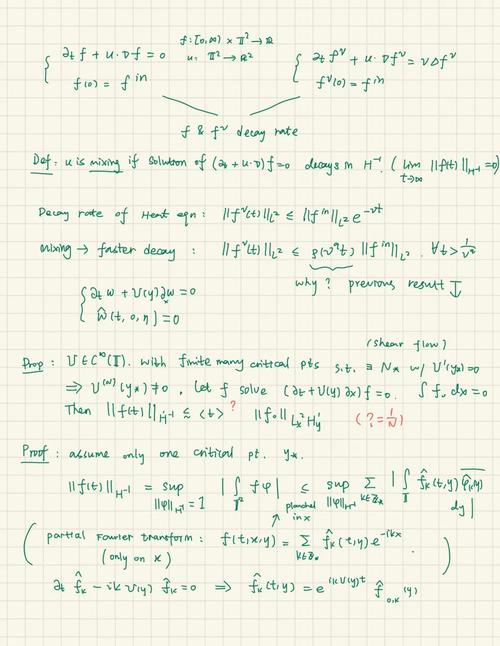 f: [0,∞) × 𝕋² → ℝ
u: 𝕋² → ℝ²
{ ∂t f + u·∇f = 0
f(0) = f^in
{ ∂t f^ν + u·∇f^ν = νΔf^ν
f^ν(0) = f^in
f & f^ν decay rate
Def: u is mixing if solution of (∂t + u·∇)f = 0 decays in H^-1. ( lim_{t→∞} ||f(t)||_{H^-1} = 0)
Decay rate of Heat eqn: ||f^ν(t)||_{L²} ≤ ||f^in||_{L²} e^{-νt}
mixing → faster decay : ||f^ν(t)||_{L²} ≤ ρ(ν^q t) ||f^in||_{L²}. ∀t > 1/ν^q
why? previous result
{ ∂t w + U(y)∂x w = 0
ŵ(t, 0, η) = 0
(shear flow)
Prop: U ∈ C^∞(𝕋). with finite many critical pts s.t. ∃ N* w/ U'(y*) = 0
⇒ U^(N)(y*) ≠ 0, Let f solve (∂t + U(y)∂x)f = 0. ∫ f₀ dx = 0
Then ||f(t)||_{H^-1} ≲ <t>^? ||f₀||_{L²x H¹y} (? = 1/N)
Proof: assume only one critical pt. y*.
||f(t)||_{H^-1} = sup_{||φ||_{H¹} = 1} | ∫_{𝕋²} f φ | ≤ sup_{||φ||_{H¹}} Σ_{k∈ℤ*} | ∫_𝕋 f̂_k(t,y) \overline{φ̂_k(y)} dy |
in x
( partial Fourier transform: f(t,x,y) = Σ_{k∈ℤ*} f̂_k(t,y) e^{-ikx} .
(only on x) )
∂t f̂_k - ik U(y) f̂_k = 0 ⇒ f̂_k(t,y) = e^{ikU(y)t} f̂_{0,k}(y)